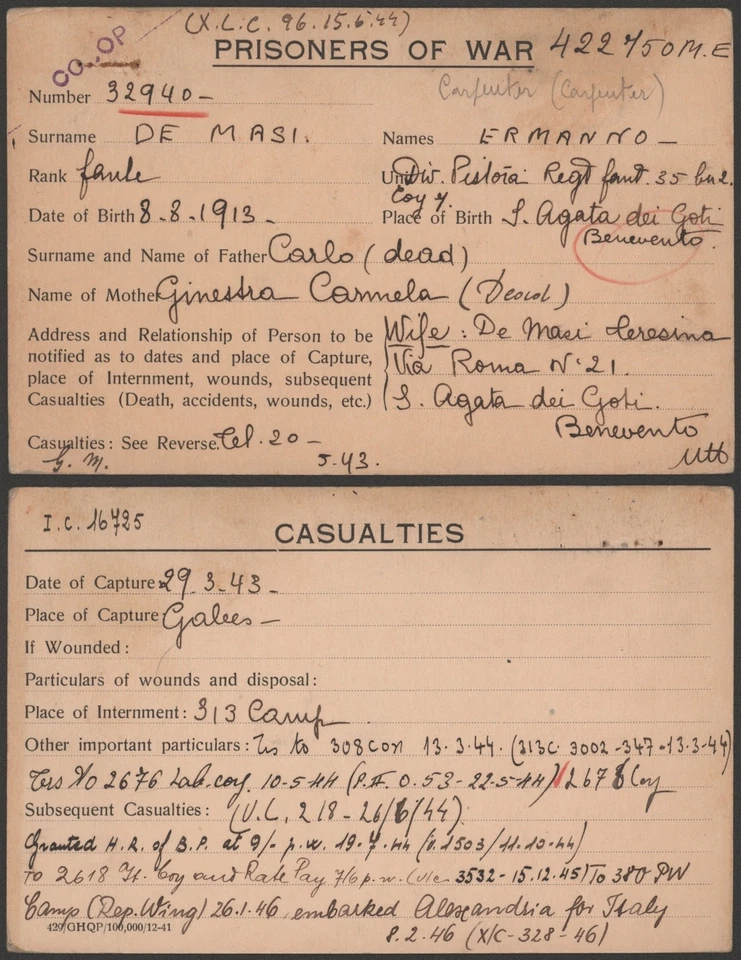 (X.L.C. 96. 15.6.44)
CO-OP
PRISONERS OF WAR 422750 M.E
Carpenter (Carpenter)
Number 32940-
Surname DE MASI. Names ERMANNO-
Rank fante Unit Div. Pistoia Regt fant. 35 bn 2.
Coy 7.
Date of Birth 8-8-1913- Place of Birth S. Agata dei Goti
Benevento.
Surname and Name of Father Carlo (dead)
Name of Mother Ginestra Carmela (Dead)
Address and Relationship of Person to be Wife: De Masi Teresina
notified as to dates and place of Capture, Via Roma N.21.
place of Internment, wounds, subsequent
Casualties (Death, accidents, wounds, etc.) S. Agata dei Goti.
Benevento
Casualties: See Reverse. Tel. 20-
G. M. 5-43.
I.C. 16725
CASUALTIES
Date of Capture: 29.3-43-
Place of Capture Gabes-
If Wounded:
Particulars of wounds and disposal:
Place of Internment: 313 Camp.
Other important particulars: Trs to 308 Con 13-3-44. (313C. 3002-347-13-3-44)
Trs No 2676 Lab. Coy. 10-5-44 (P.II. 0.53-22-5-44) 2678 Coy
Subsequent Casualties: (U.L, 218-26/6/44)
Granted H.R. of B.P. at 9/- p.w. 19-7-44 (V.1503/11-10-44)
To 2618 Coy and Rate Pay 7/6 p.w. (V/c 3532-15.12.45) To 380 PW
Camp (Rep. Wing) 26.1.46, embarked Alexandria for Italy
429/GHQP/100,000/12-41
8.2.46 (X/C-328-46)